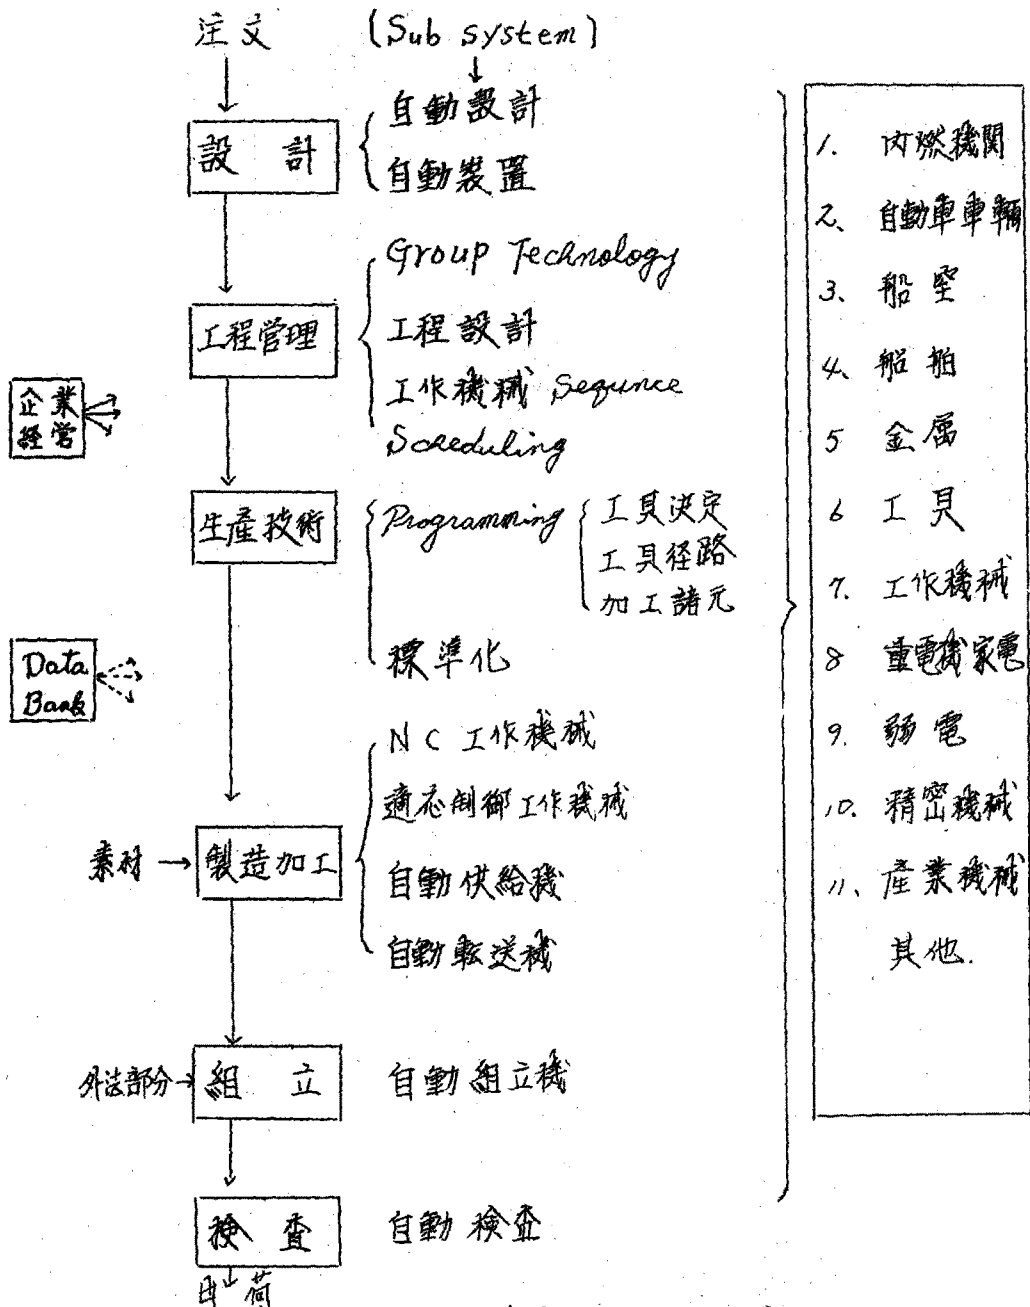 注文
(Sub system)
設計
自動設計
自動装置
工程管理
Group Technology
工程設計
工作機械 Sequnce
Scheduling
企業
経営
生産技術
Programming
工具決定
工具径路
加工諸元
標準化
Data
Bank
素材
製造加工
NC工作機械
適応制御工作機械
自動供給機
自動転送機
外法部分
組立
自動組立機
検査
自動検査
出荷
1. 内燃機関
2、自動車車輌
3、船空
4、船舶
5 金属
6 工具
7. 工作機械
8 重電機家電
9. 弱電
10. 精密機械
11、産業機械
其他.